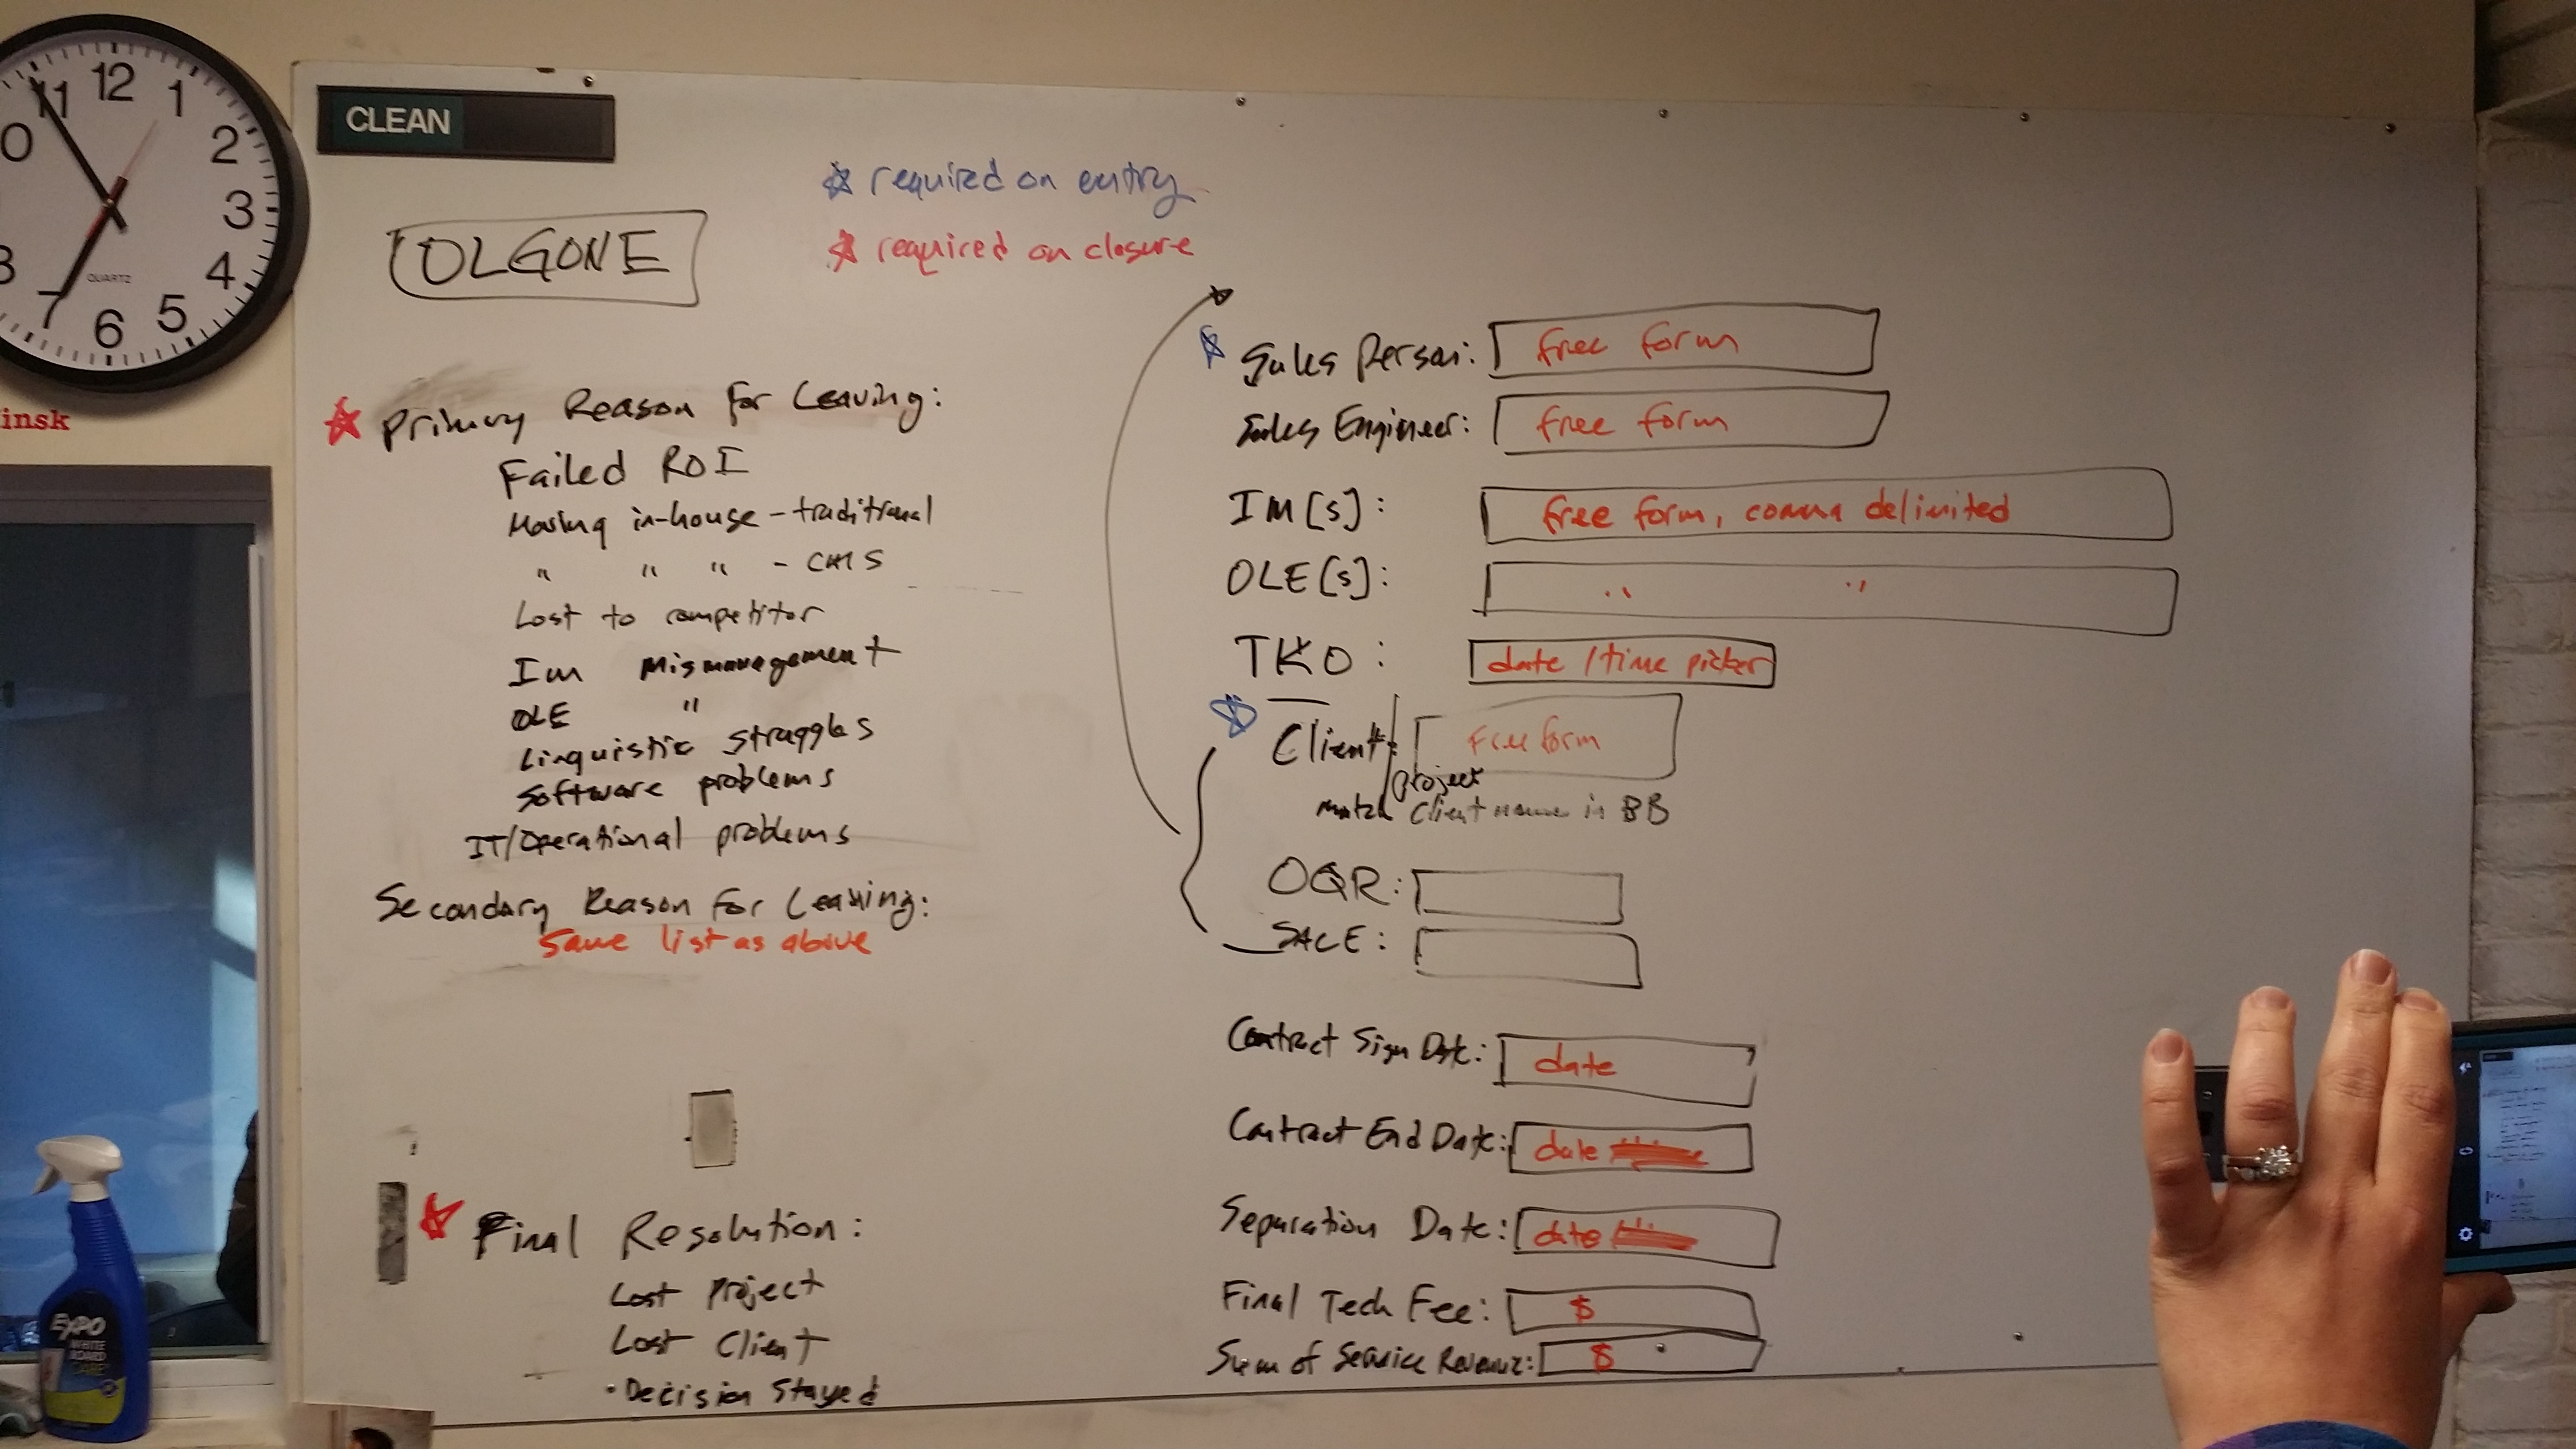 12
11
1
0
2
3
3
4
QUARTZ
7
5
6
CLEAN
insk
☆ required on entry
☆ required on closure
OLGONE
☆ Primary Reason for Leaving:
Failed ROI
Moving in-house - traditional
" " " - CMS
Lost to competitor
IM Mismanagement
OLE "
Linguistic struggles
Software problems
IT/Operational problems
Secondary Reason for Leaving:
Same list as above
☆ Final Resolution:
Lost Project
Lost Client
• Decision Stayed
☆ Sales Person: free form
Sales Engineer: free form
IM[s]: free form, comma delimited
OLE[s]: " "
TKO: date/time picker
☆ Client/ free form
Project
match Client name in BB
OQR:
SALE:
Contract Sign Date: date
Contract End Date: date
Separation Date: date
Final Tech Fee: $
Sum of Service Revenue: $
EXPO
WHITE
BOARD
CARE